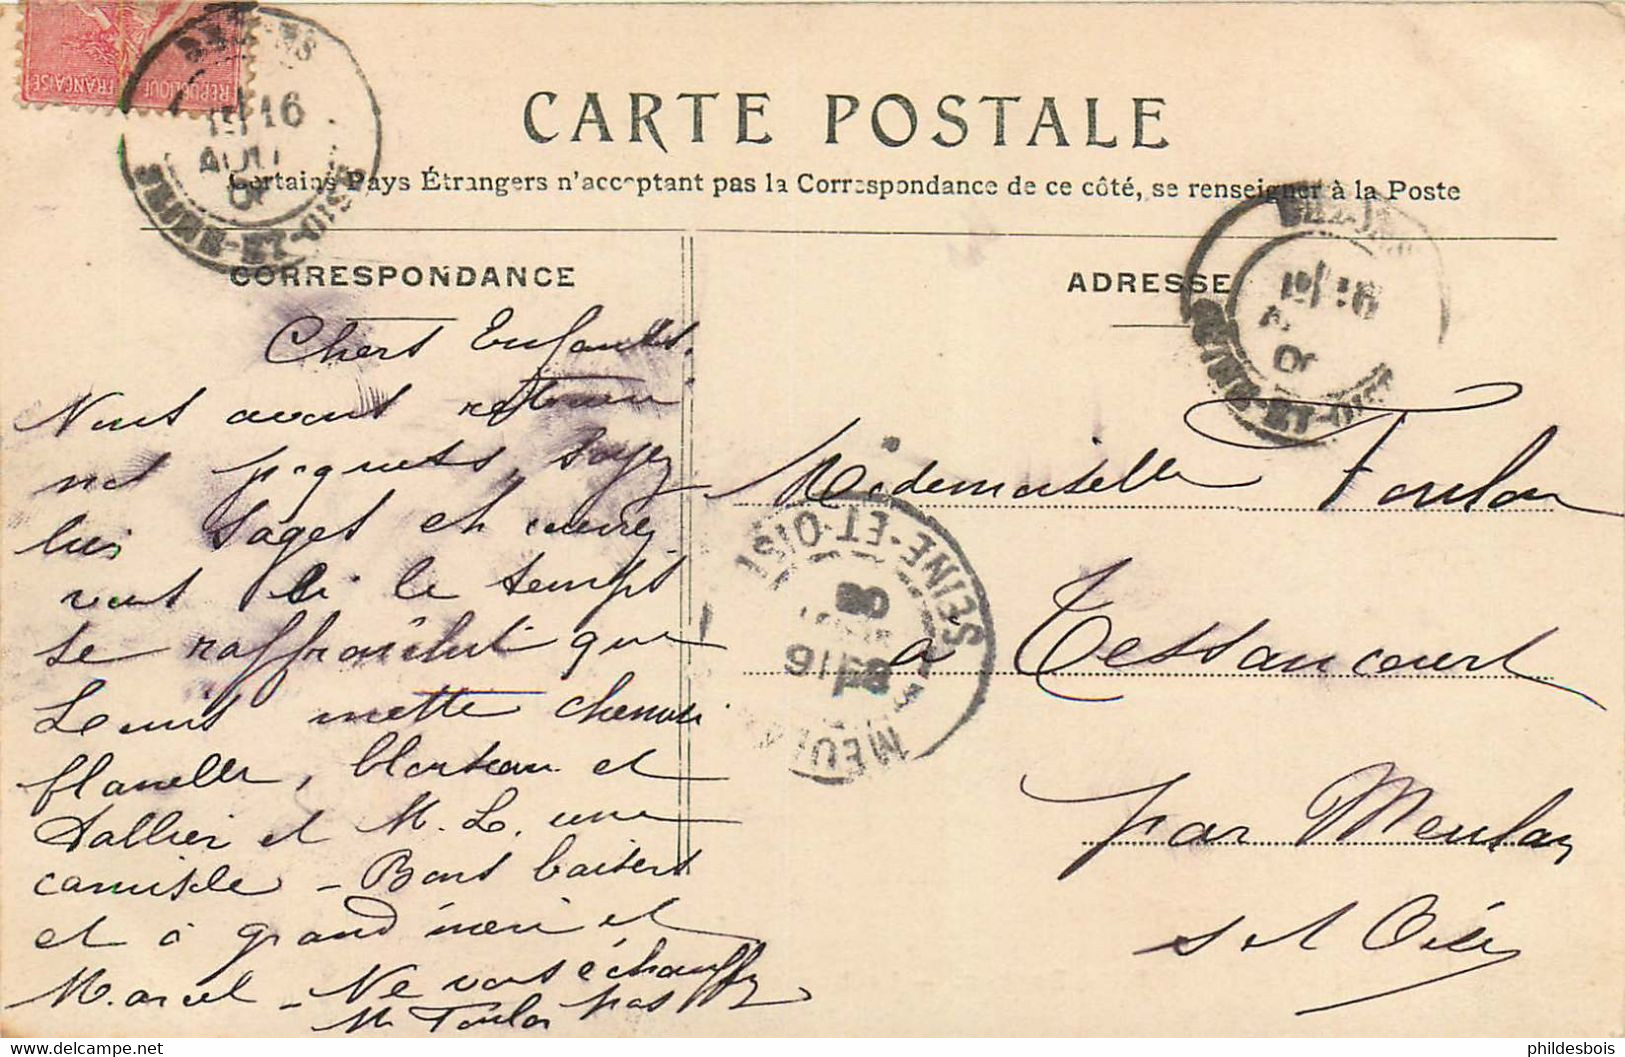 RÉPUBLIQUE FRANÇAISE
CARTE POSTALE
Certains Pays Étrangers n'acceptant pas la Correspondance de ce côté, se renseigner à la Poste
CORRESPONDANCE
ADRESSE
16
AOUT
SEINE-ET-OISE
Chers Enfants.
Nous avons retenu
nos paquets, soyez
bien sages et couvrez
vous si le temps
se raffraichit que
Louis mette chemise
flanelle, et
et M. L. une
camisole - Bons baisers
et à grand mère et
Marcel - Ne vous échauffez
pas
M Toulon
Mademoiselle Toulon
à Tessancourt
par Meulan
S et Oise
SEINE-ET-OISE
MEULAN
phildesbois